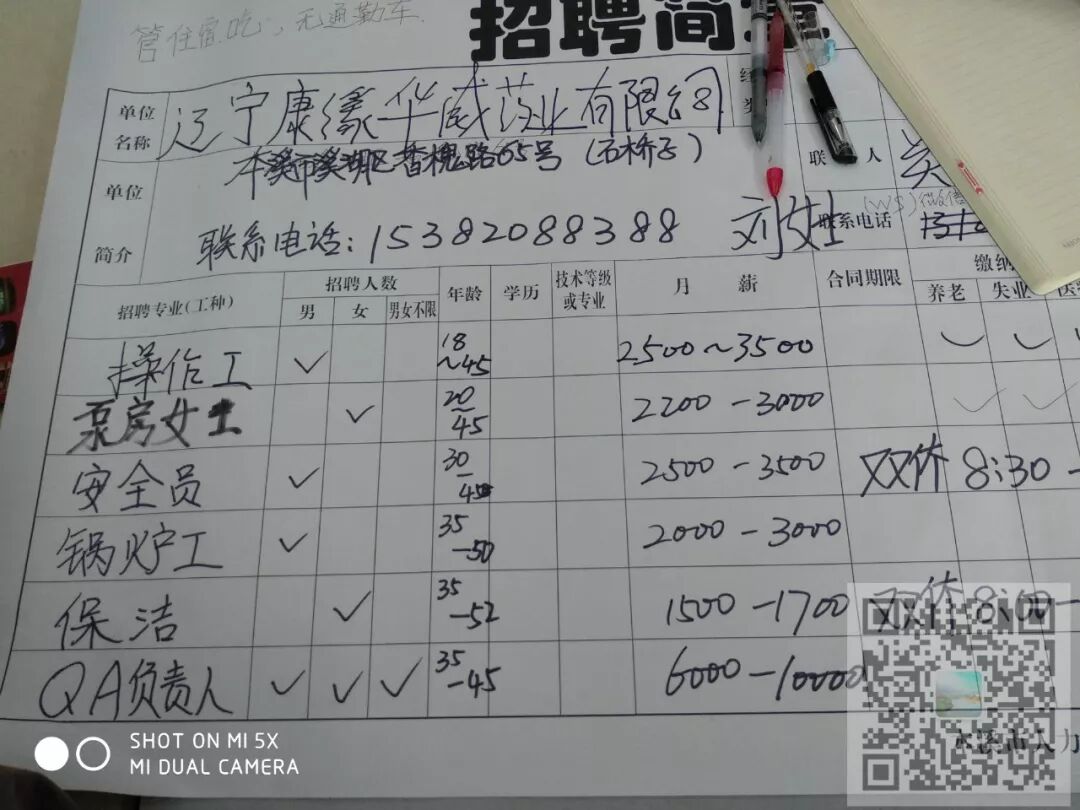 管住宿吃，无通勤车
招聘简章
单位名称 辽宁康缘华威药业有限公司
本溪市溪湖区香槐路65号（石桥子）
单位简介 联系电话：15382088388 刘女士
联 人
联系电话
招聘专业(工种) 招聘人数 年龄 学历 技术等级或专业 月薪 合同期限 缴纳
男 女 男女不限 养老 失业
操作工 ✓ 18~45 2500~3500 ✓ ✓
泵房女工 ✓ 20-45 2200-3000 ✓ ✓
安全员 ✓ 30-45 2500-3500 双休 8:30-
锅炉工 ✓ 35-50 2000-3000
保洁 ✓ 35-52 1500-1700 双休 8:00-
QA负责人 ✓ ✓ ✓ 35-45 6000-10000
本溪市人力
SHOT ON MI 5X
MI DUAL CAMERA